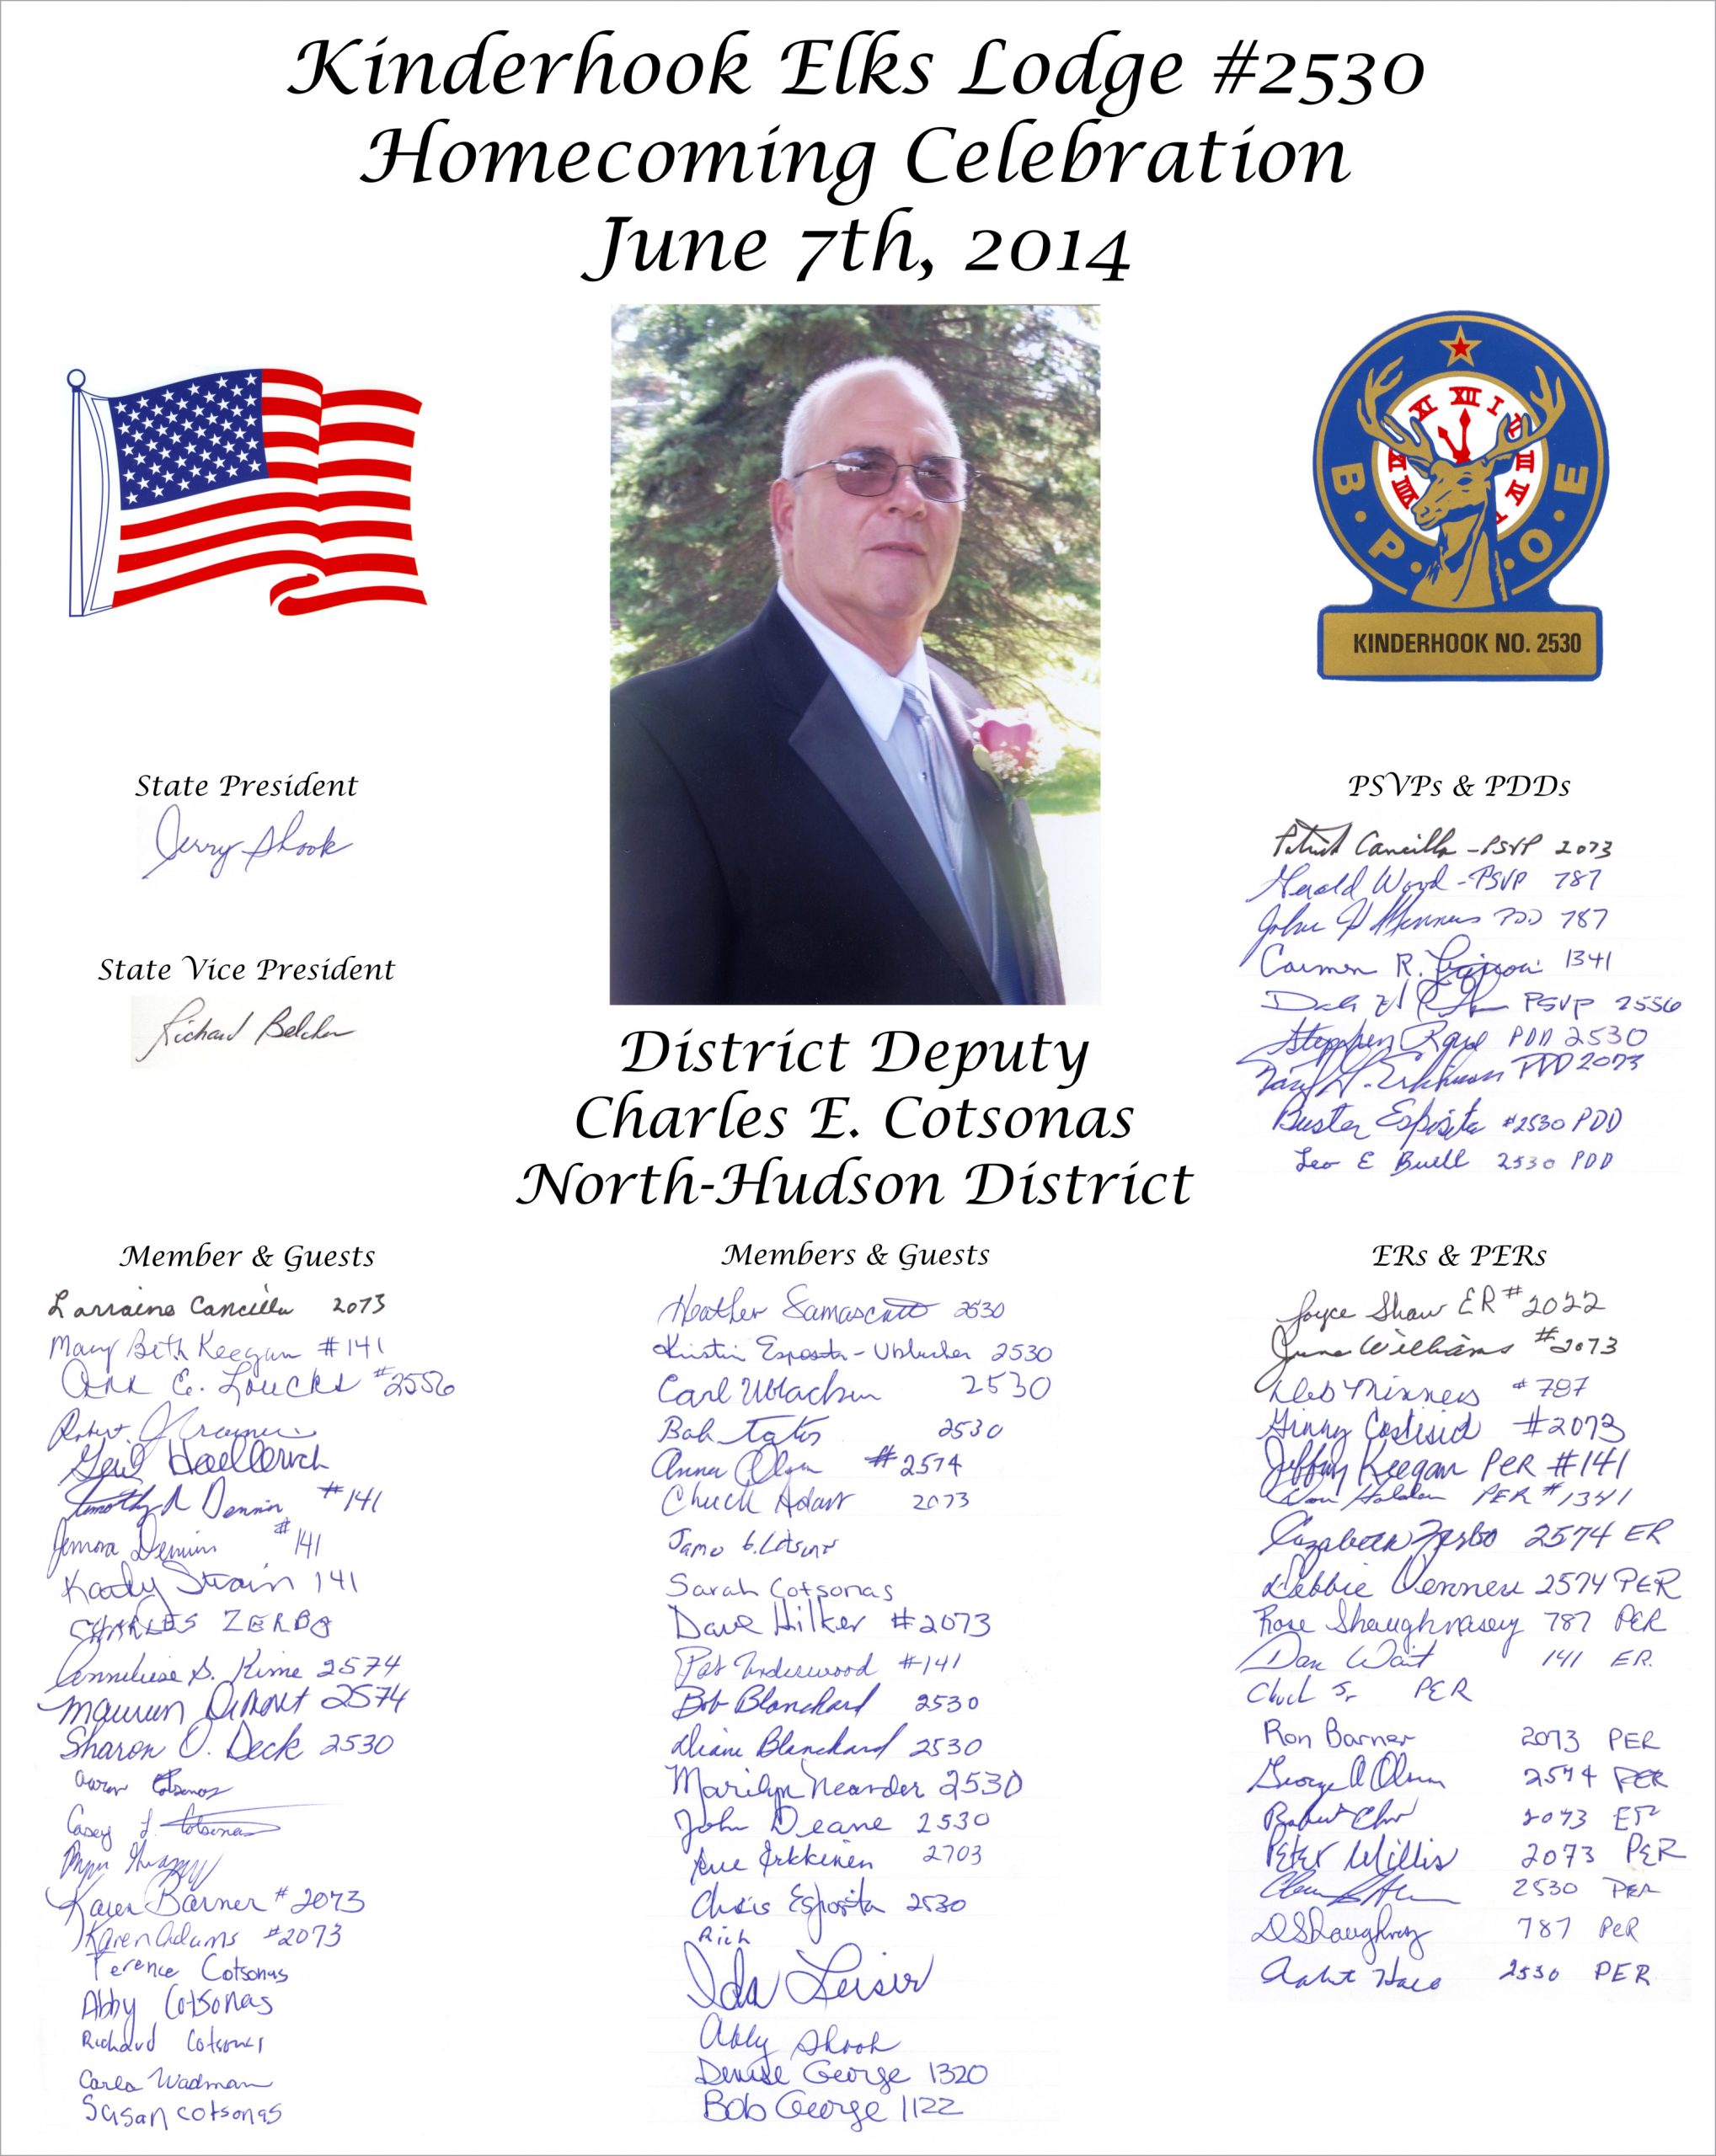 Kinderhook Elks Lodge #2530
Homecoming Celebration
June 7th, 2014
XI XII I II III IV
B.P.O.E
KINDERHOOK NO. 2530
State President
Jerry Shook
State Vice President
Richard Belcher
District Deputy
Charles E. Cotsonas
North-Hudson District
PSVPs & PDDs
Cancilla - PSVP 2073
Gerald Wood - PSVP 787
John P Minners PDD 787
Carmen R. 1341
PSVP 2556
Stephen PDD 2530
PDD 2073
Buster Esposito #2530 PDD
Leo E Buell 2530 PDD
Member & Guests
Lorraine Cancilla 2073
Mary Beth Keegan #141
Ann E. Loucks #2556
Robert J
Haellerich
Timothy R Dennin #141
#141
Kathy Strain 141
CHARLES ZERBO
Anneliese S. Kime 2574
Maureen 2574
Sharon O. Deck 2530
Cotsonas
Casey L. Cotsonas
Karen Barner #2073
Karen Adams #2073
Terence Cotsonas
Abby Cotsonas
Richard Cotsonas
Carla Wadman
Susan Cotsonas
Members & Guests
Heather Samascott 2530
Kristin Esposito-Ublacker 2530
Carl Ublacker 2530
Bob 2530
Anna Olsen #2574
Chuck 2073
Sarah Cotsonas
Dave Hilker #2073
Pat Underwood #141
Bob Blanchard 2530
Diane Blanchard 2530
Marilyn Neander 2530
John Deane 2530
Sue Erkkinen 2703
Chris Esposito 2530
Rich
Ida Leiser
Abby Shook
Denise George 1320
Bob George 1122
ERs & PERs
Joyce Shaw ER #2022
June Williams #2073
Deb Minners #787
Ginny #2073
Jeffrey Keegan PER #141
Holden PER #1341
Elizabeth Zerbo 2574 ER
Debbie 2574 PER
Rose Shaughnessy 787 PER
Dan Wait 141 ER.
Chuck Sr PER
Ron Barner 2073 PER
George A Olsen 2574 PER
Robert 2073 ER
Peter Willis 2073 PER
2530 PER
D Shaughnessy 787 PER
2530 PER